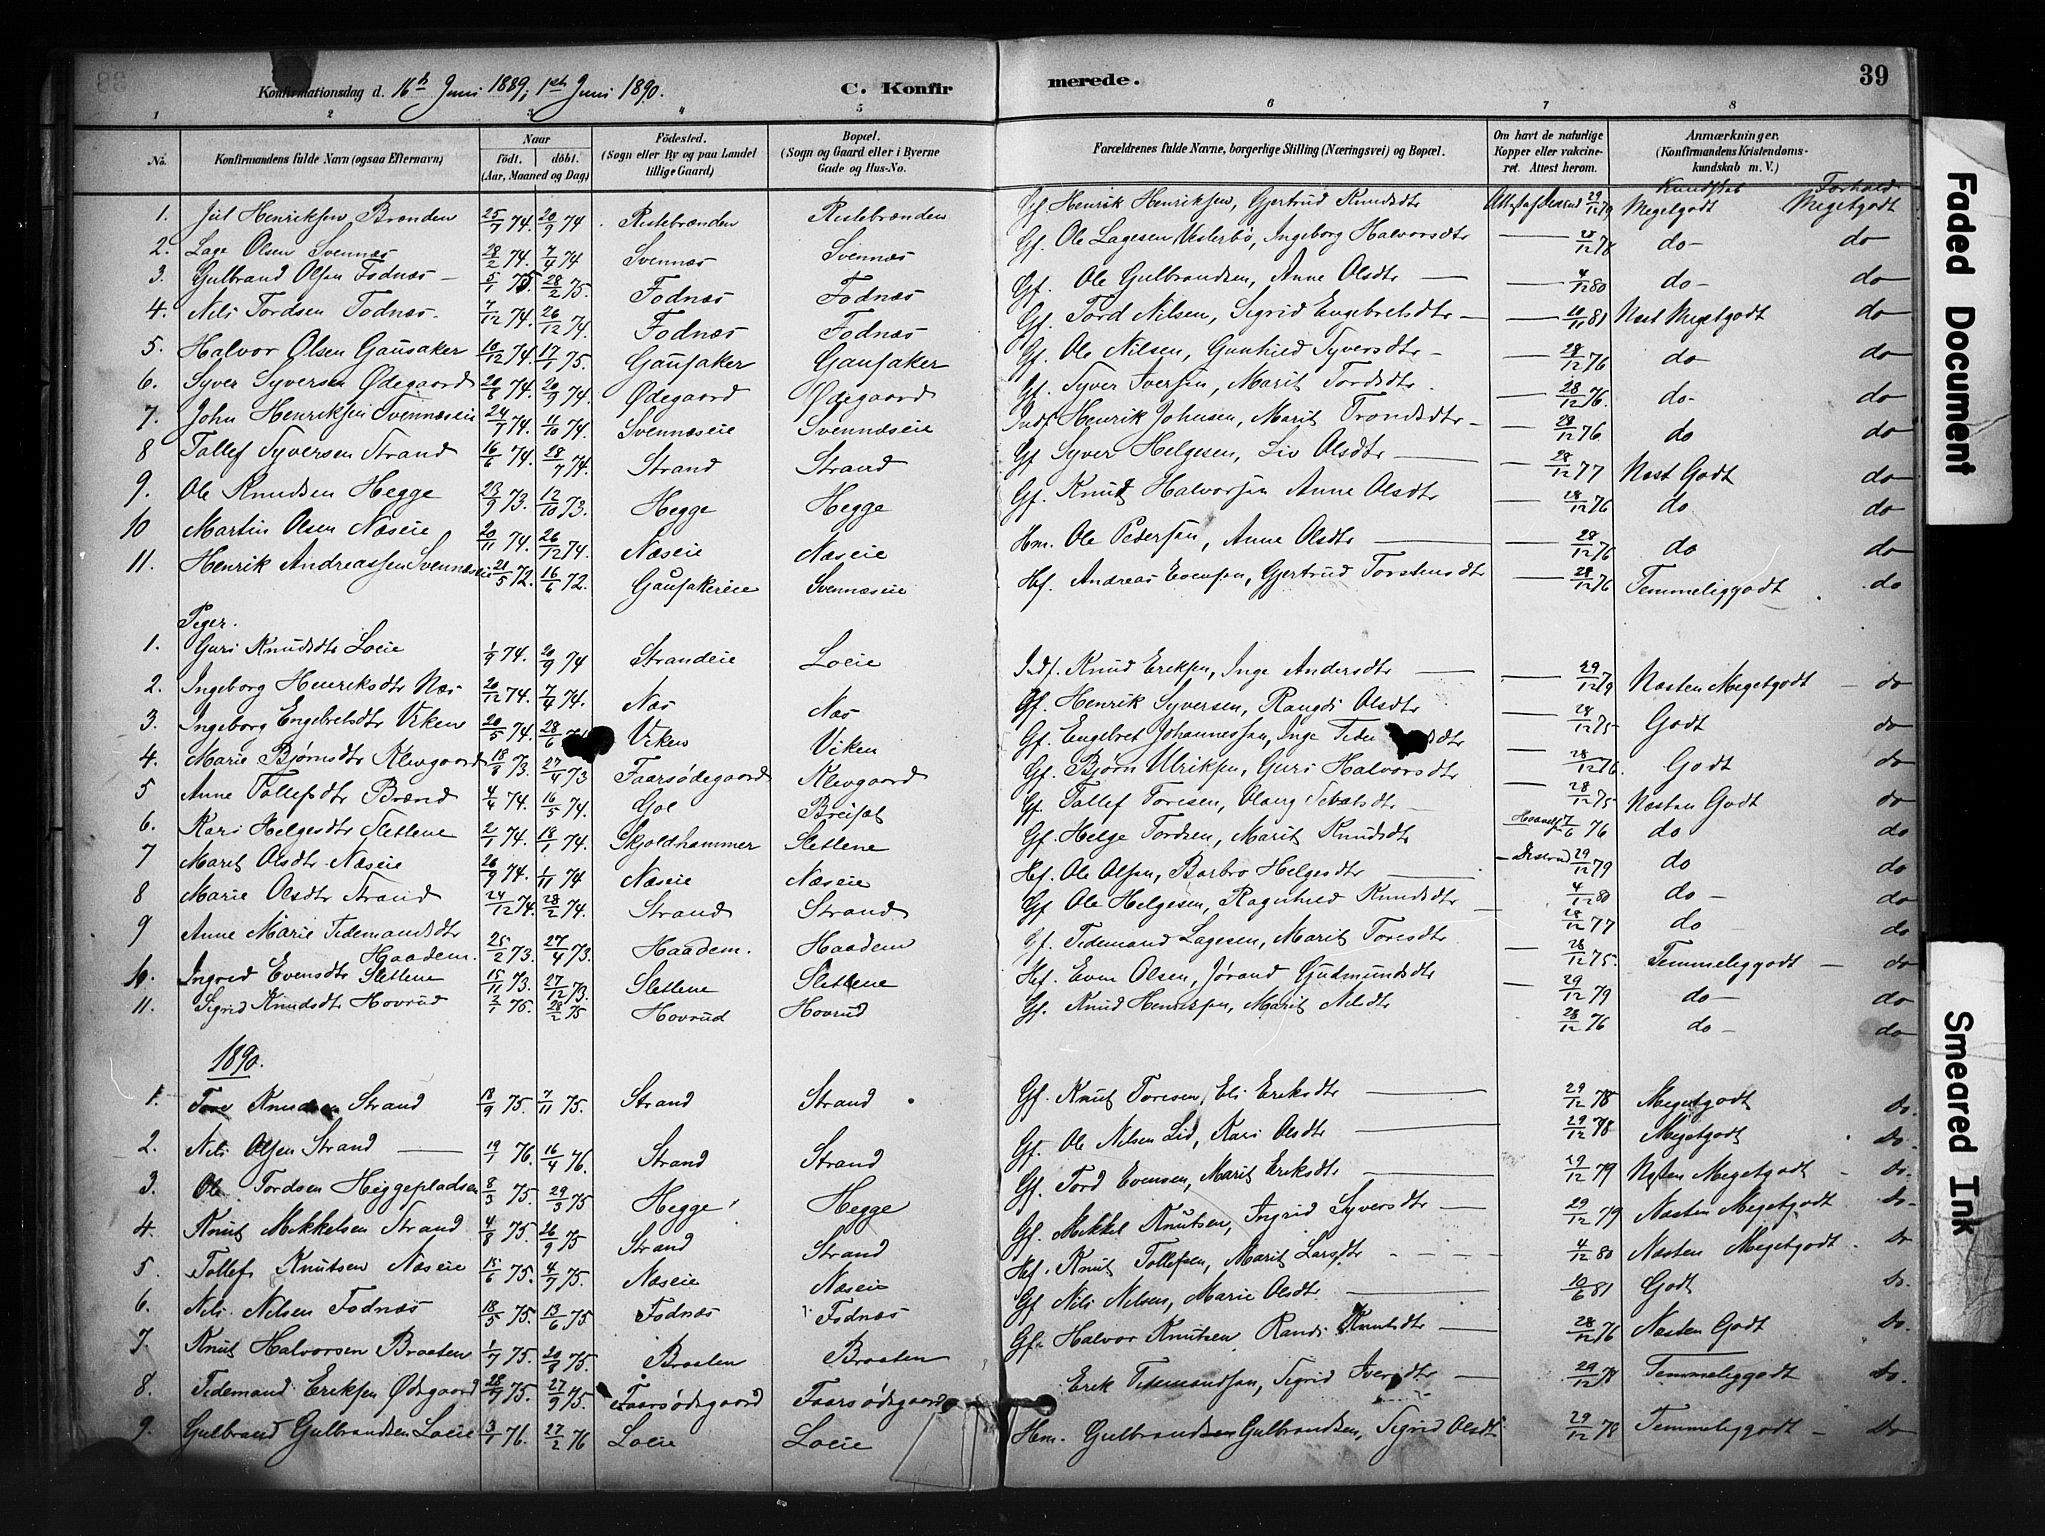 39
Konfirmationsdag d. 16de Juni 1889, 1ste Juni 1890. C. Konfirmerede.
1 2 3 4 5 6 7 8
No. Konfirmandens fulde Navn (ogsaa Efternavn) Naar födt. döbt. (Aar, Maaned og Dag) Födested. (Sogn eller By og paa Landet tillige Gaard) Bopæl. (Sogn og Gaard eller i Byerne Gade og Hus-No. Forældrenes fulde Navne, borgerlige Stilling (Næringsvei) og Bopæl. Om havt de naturlige Kopper eller vakcineret. Attest herom. Anmærkninger. (Konfirmandens Kristendomskundskab m. V.)
Kundskab Forhold
1. Juel Henriksen Brænden 25/7 74. 20/9 74 Ristebrænden Ristebrænden Gf. Henrik Henriksen, Gjertrud Knudsdtr 29/12 79 Megetgodt Megetgodt
2. Lage Olsen Svennæs 28/2 74. 7/4 74 Svennæs Svennæs Gf. Ole Lagesen Vesterbø, Ingeborg Halvorsdtr 28/12 78 do do
3. Gulbrand Olsen Fodnæs 5/1 75. 28/2 75. Fodnæs Fodnæs Gf. Ole Gulbrandsen, Anne Olsdtr 4/12 80 do do
4. Nils Tordsen Fodnæs. 7/12 74. 26/12 74. Fodnæs Fodnæs Gf. Tord Nilsen, Sigrid Engebretsdtr 10/11 81 Næst Megetgodt do
5. Halvor Olsen Gausaker 10/12 74. 17/1 75. Gausaker Gausaker Gf. Ole Nilsen, Gunhild Syversdtr 28/12 76 do do
6. Syver Syversen Ødegaard 20/8 74. 20/9 74. Ødegaard Ødegaard Gf. Syver Iversen, Marit Tordsdtr 28/12 76. do do
7. John Henriksen Svennæseie 24/7 74. 4/10 74. Svennæseie Svennæseie Inds. Henrik Johnsen, Marit Trondsdtr 28/12 76 do do
8 Tollef Syversen Strand 16/6 74. 28/7 74. Strand Strand Gf Syver Helgesen, Liv Olsdtr 28/12 77 Næst Godt do
9. Ole Knudsen Hegge 23/9 73. 12/10 73. Hegge Hegge Gf. Knut Halvorsen Anne Olsdtr 28/12 76 do do
10 Martin Olsen Næseie 20/11 74. 26/12 74. Næseie Næseie Hm. Ole Pedersen, Anne Olsdtr 28/12 76 do do
11. Henrik Andreassen Svennæseie 21/5 72. 16/6 72. Gausakereie Svennæseie Hf. Andreas Evensen, Gjertrud Torstensdtr 28/12 76 Temmeliggodt do
Piger.
1. Guri Knudsdtr Loeie 1/9 74. 20/9 74 Strandeie Loeie Inds. Knud Eriksen, Inge Andersdtr 29/12 79 Næsten Megetgodt do
2. Ingeborg Henriksdtr Næs 20/12 74. 7/4 74. Næs Næs Gf. Henrik Syversen, Rangdi Olsdtr 28/12 75 Godt do
3. Ingeborg Engebretsdtr Viken 20/5 74. 28/6 Viken Viken Gf. Engebret Johannessen, Inge 28/12 76. Godt do
4. Marie Bjørnsdtr Klevgaard 18/8 73. 27/4 73 Faarsødegaard Klevgaard Gf. Bjørn Ulriksen, Guri Halvorsdtr 28/12 75 Næsten Godt do
5 Anne Tollefsdtr Brænd 4/4 74. 16/5 74. Gol Breisæt Gf. Tollef Toresen, Olaug 7/6 76 do do
6. Kari Helgesdtr Sletlene 2/1 74. 18/1 74. Skjoldhammer Sletlene Gf. Helge Tordsen, Marit Knudsdtr 29/12 79 do do
7 Marit Olsdtr Næseie 26/9 74. 1/11 74 Næseie Næseie Hf. Ole Olsen, Barbro Helgesdtr 4/12 80 do do
8 Marie Olsdtr Strand 24/12 74. 28/2 74. Strand Strand Gf Ole Helgesen, Ragnhild Knudsdtr 28/12 77 do do
9 Anne Marie Tidemandsdtr Haadem. 25/2 73. 27/4 73. Haadem. Haadem Gf. Tidemand Lagesen, Marit Toresdtr 28/12 75. Temmeliggodt do
10. Ingrid Evensdtr Sletlene 15/11 73. 27/12 73. Sletlene Sletlene Hf. Even Olsen, Jørand Gudmundsdtr 29/12 79 do do
11. Sigrid Knudsdtr Hovrud 2/1 75. 28/2 75 Hovrud Hovrud Gf. Knud Henriksen, Marit Nilsdtr 28/12 76 do do
1890.
1. Tore Knudsen Strand 18/9 75. 7/11 75. Strand Strand Gf. Knut Toresen, Eli Eriksdtr 29/12 78 Megetgodt Do.
2. Nils Olsen Strand 19/1 76. 16/4 76. Strand Strand Gf. Ole Nilsen Lid, Kari Olsdtr 29/12 78 Megetgodt Do.
3. Ole Tordsen Heggepladsen 8/3 75. 29/3 75 Hegge Hegge Gf. Tord Evensen, Marit Eriksdtr 29/12 79 Næsten Megetgodt Do.
4. Knut Mikkelsen Strand 4/8 75. 26/9 75 Strand Strand Gf. Mikkel Knutsen, Ingrid Syversdtr 29/12 79 Næsten Megetgodt Do.
5. Tollef Knutsen Næseie 15/6 75. 4/7 75. Næseie Næseie Hf. Knut Tollefsen, Marit Larsdtr 4/12 80 Næsten Megetgodt. Do
6. Nils Nilsen Fodnæs 18/5 75. 13/6 75 Fodnæs Fodnæs Gf Nils Nilsen, Marie Olsdtr 10/6 81 Godt Do.
7. Knut Halvorsen Braaten 1/7 75. 20/8 75. Braaten Braaten Gf. Halvor Knutsen Randi Knutsdtr 28/12 76 Næsten Godt Do.
8. Tidemand Eriksen Ødegaard 28/7 75. 27/9 75. Faarsødegaard Faarsødegaard Erik Tidemandsen, Sigrid Iversdtr 29/12 78 Temmeliggodt Do.
9. Gulbrand Gulbrandsen Loeie 3/1 76. 27/2 76 Loeie Loeie Hm. Gulbrandsen Gulbrandsen, Sigrid Olsdt 29/12 78 Temmeliggodt Do
Faded Document
Smeared Ink